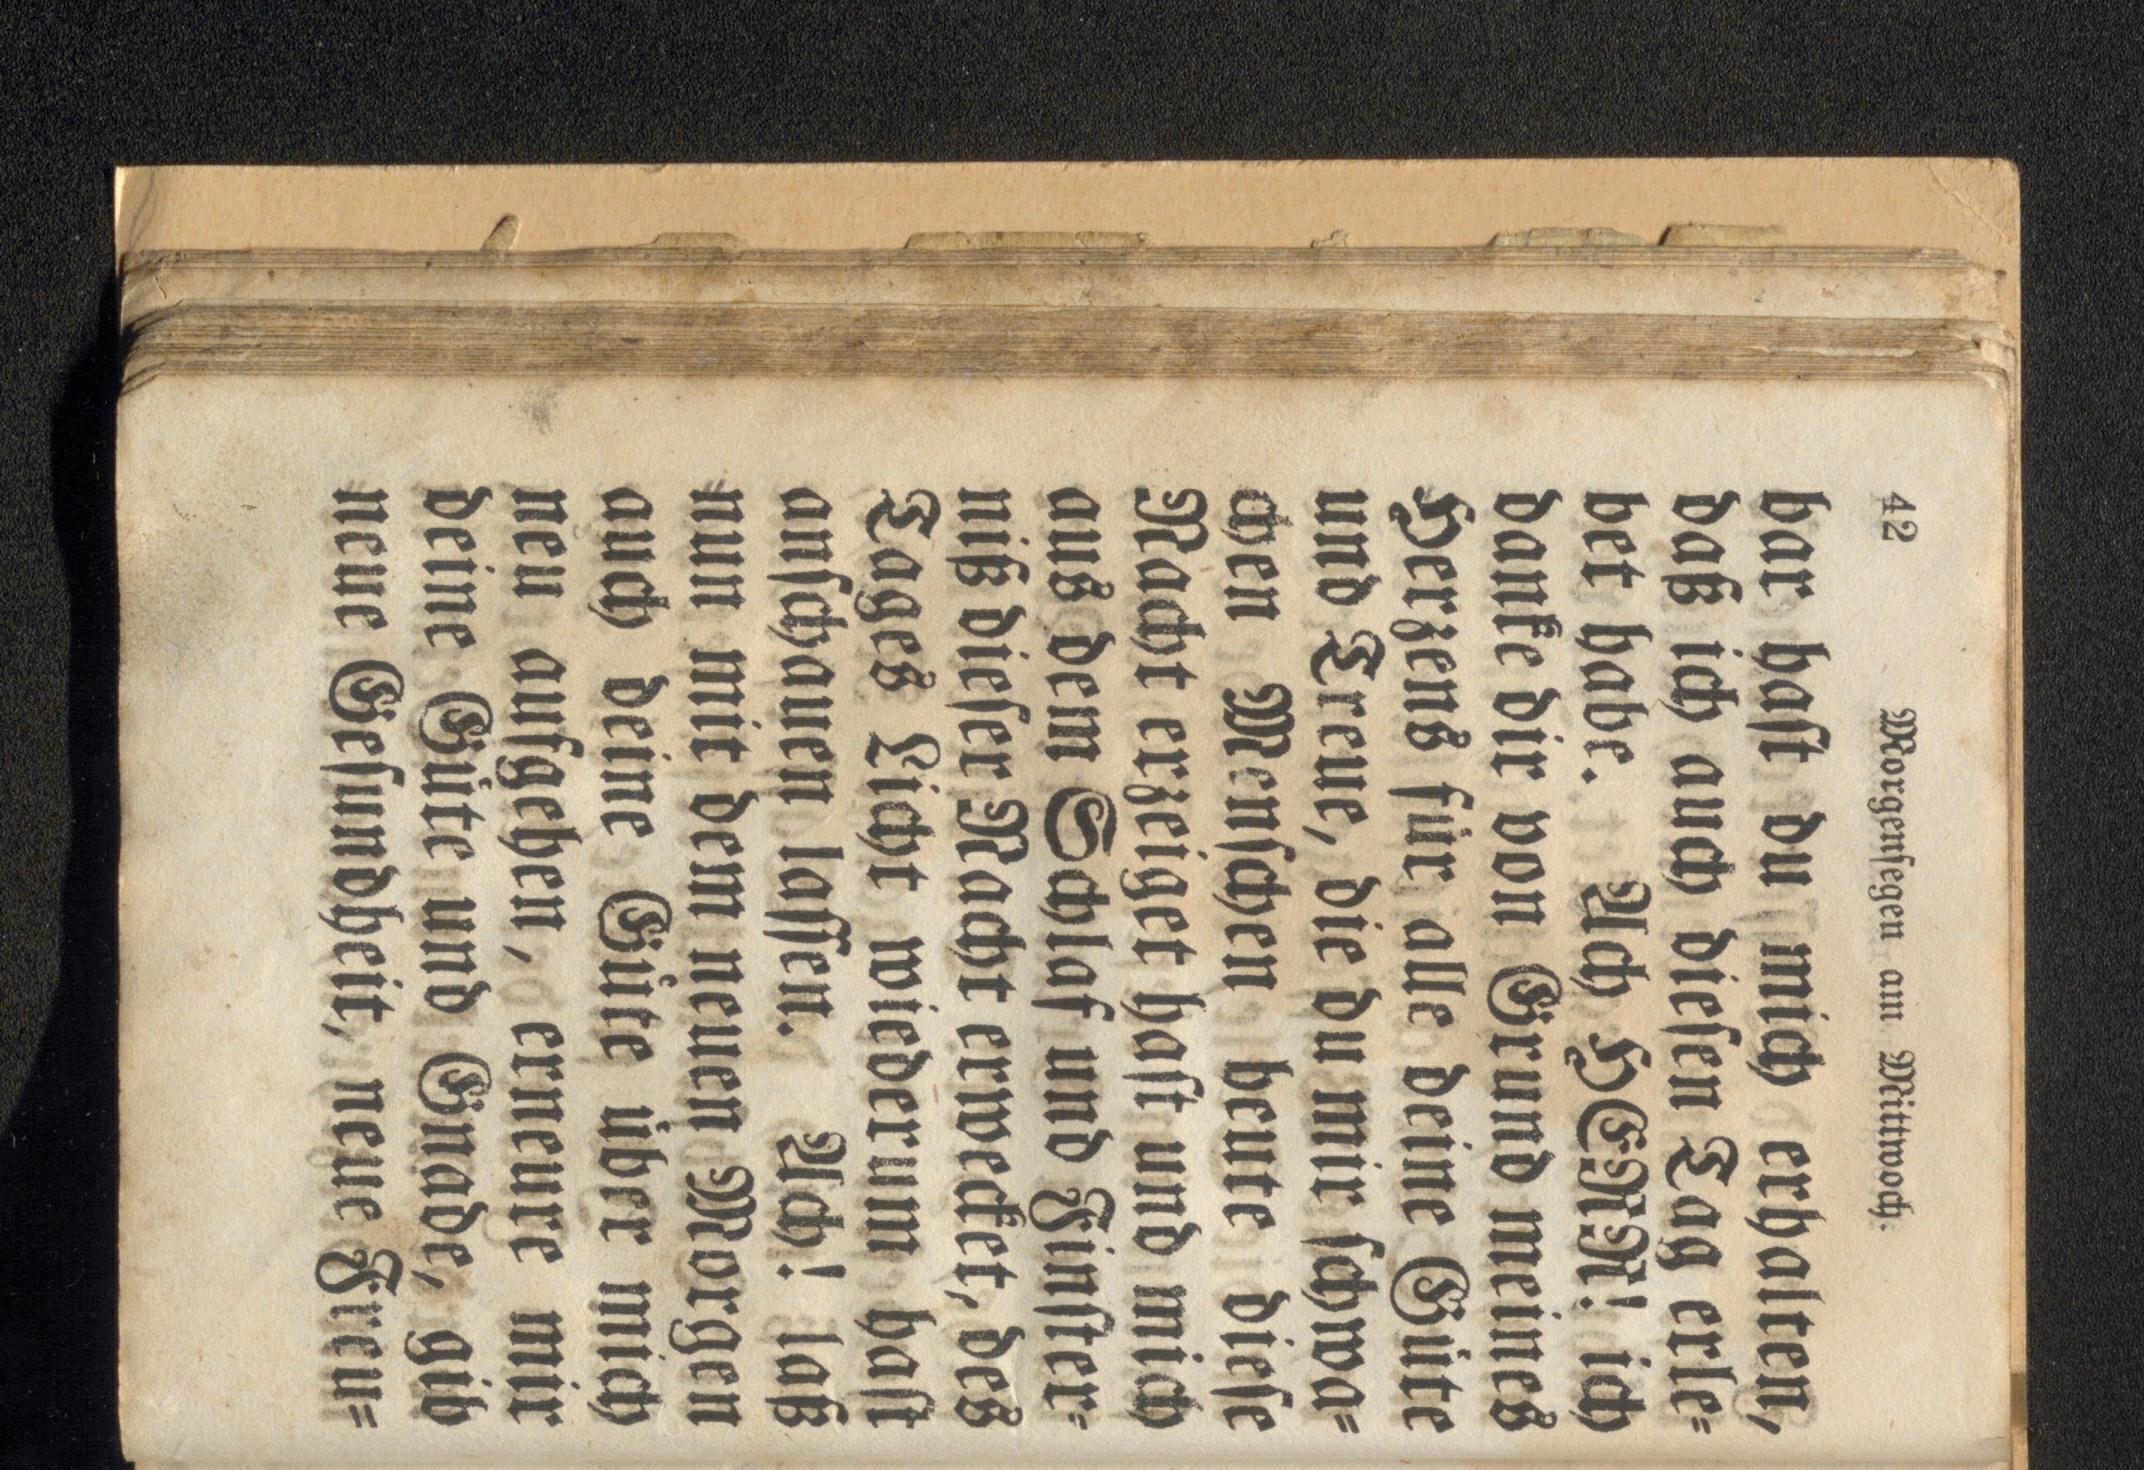 42 Morgenſegen am Mittwoch.
bar haſt du mich erhalten,
daß ich auch dieſen Tag erle-
bet habe. Ach HERR! ich
danke dir von Grund meines
Hertzens für alle deine Güte
und Treue, die du mir ſchwa-
chen Menſchen heute dieſe
Nacht erzeiget haſt und mich
aus dem Schlaf und Finſter-
niß dieſer Nacht erwecket, des
Tages Licht wiederum haſt
anſchauen laſſen. Ach! laß
nun mit dem neuen Morgen
auch deine Güte über mich
neu aufgehen, erneure mir
deine Güte und Gnade, gib
neue Geſundheit, neue Freu-